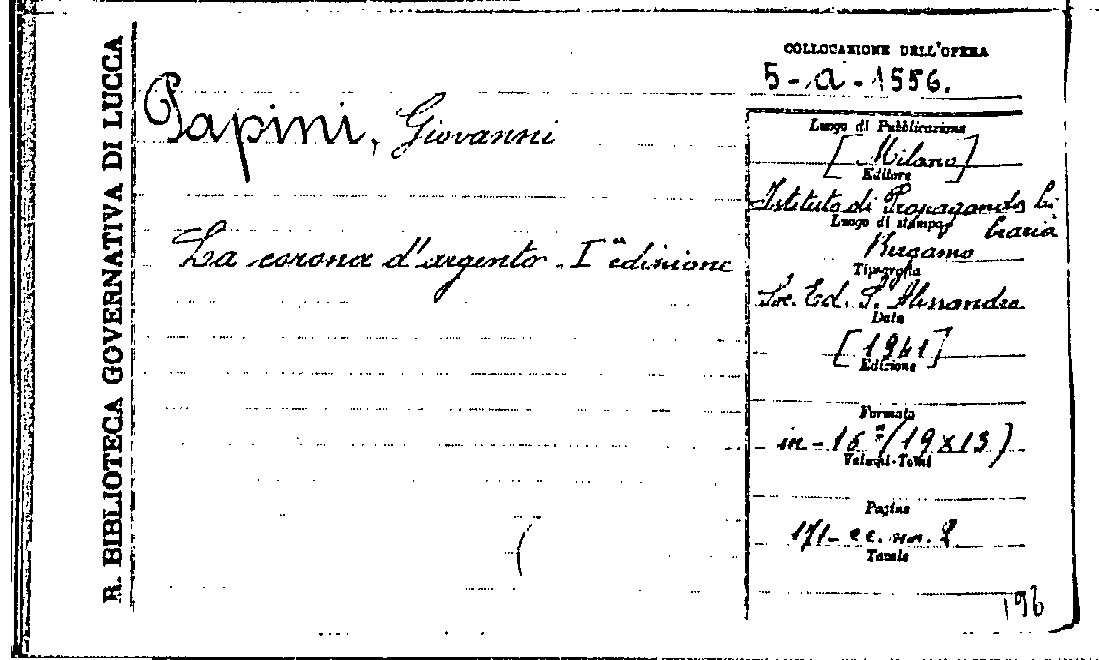 R. BIBLIOTECA GOVERNATIVA DI LUCCA
Papini, Giovanni
La corona d'argento - Iª edizione
COLLOCAZIONE DELL'OPERA
5-a-1556.
Luogo di Pubblicazione
[Milano]
Editore
Istituto di Propaganda Li-
braria
Luogo di stampa
Bergamo
Tipografia
Soc. Ed. S. Alessandro
Data
[1941]
Edizione
Formato
in-16º (19x13)
Volumi-Tomi
Pagine
171-cc. nn. 2
Tavole
196